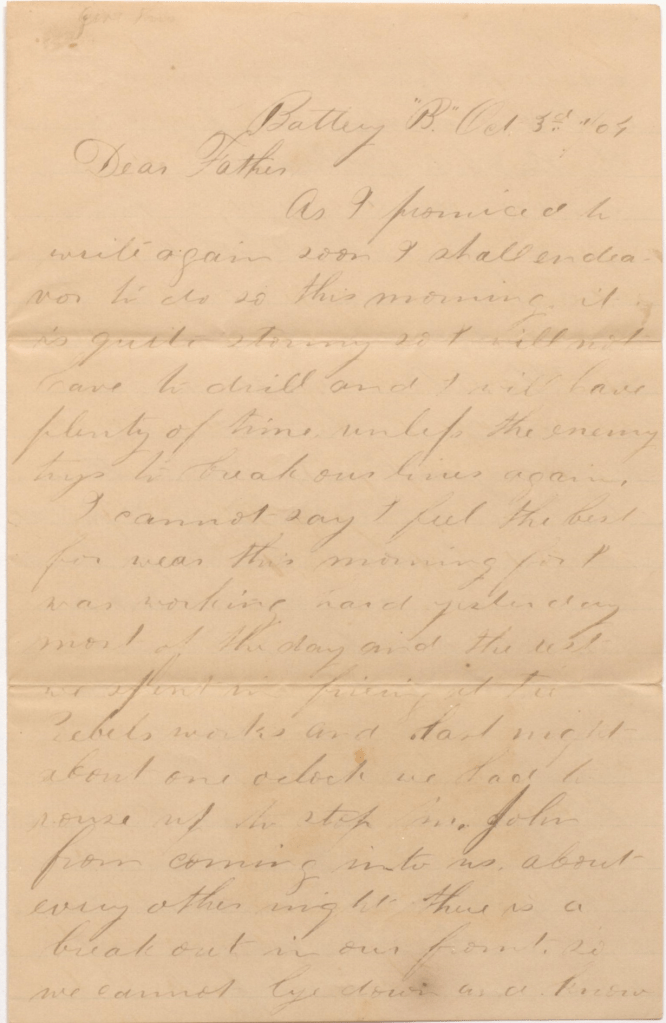 Battery "B." Oct 3rd
Dear Father
As I promiced to
write again soon I shall endea-
vor to do so this morning. it
is quite stormy so I will not
have to drill and I will have
plenty of time. unless the enemy
trys to break our lines again.
I cannot say I feel the best
for wear this morning for I
was working hard yesterday
most of the day and the rest
we spent in fireing at the
Rebels works and last night
about one oclock we had to
rouse up to stop mr. John
from coming into us. about
every other night there is a
break out in our front. so
we cannot lye down and know